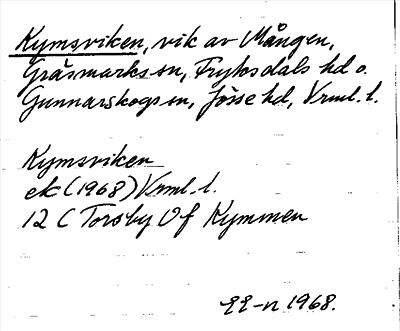 Kymsviken, vik av Mången,
Gräsmarks sn, Fryksdals hd o.
Gunnarskogs sn, Jösse hd, Vrml. l.
Kymsviken
ek (1968) Vrml. l.
12 C Torsby Of Kymmen
EE-n 1968.